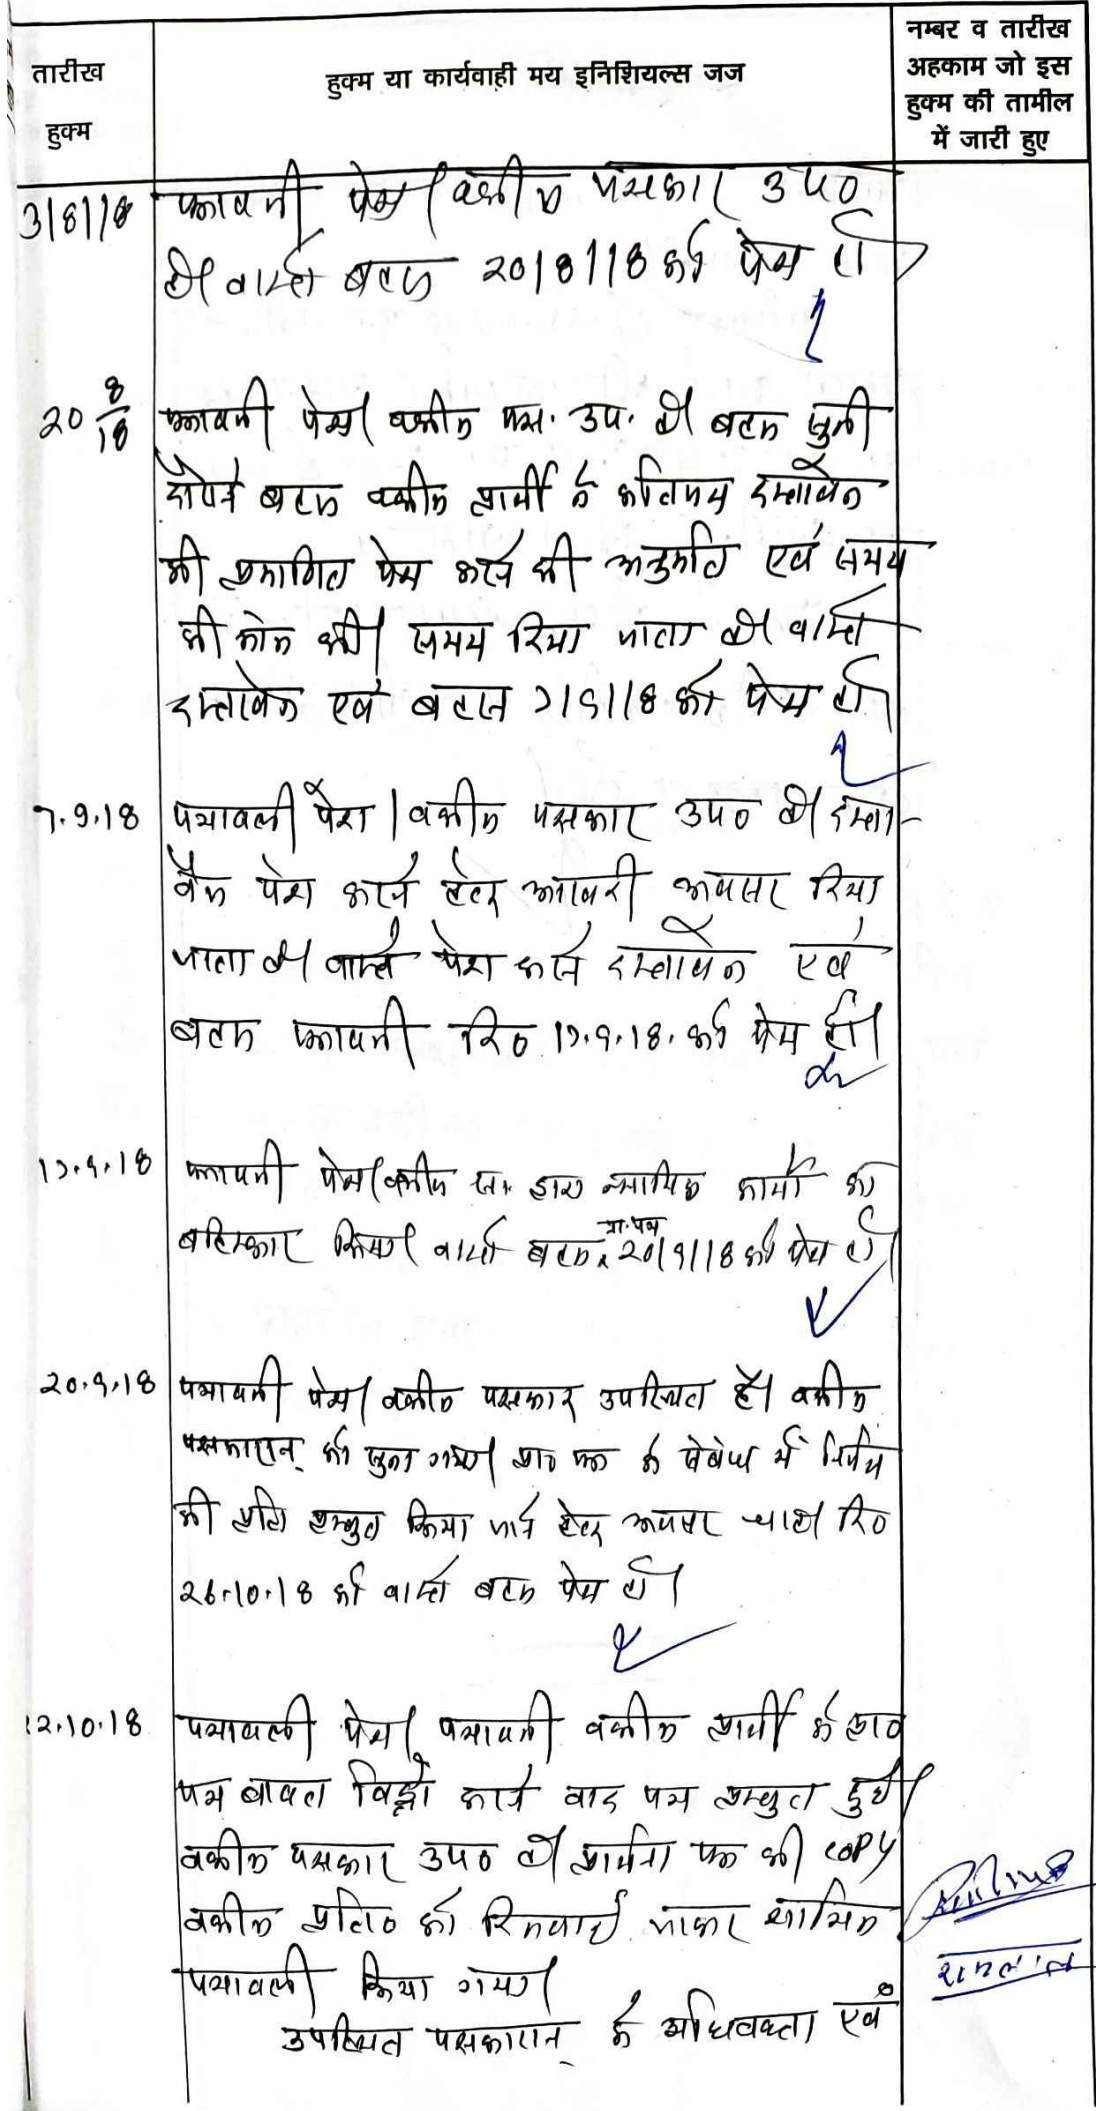 तारीख
हुक्म
हुक्म या कार्यवाही मय इनिशियल्स जज
नम्बर व तारीख
अहकाम जो इस
हुक्म की तामील
में जारी हुए
3/8/18 पत्रावली पेश। वकील पक्षकार उप०
है। वास्ते बहस 20/8/18 को पेश हो।
20 8/18 पत्रावली पेश। वकील पक्ष. उप. है। बहस सुनी
दौराने बहस वकील प्रार्थी ने कतिपय दस्तावेज
की प्रमाणित पेश करने की अनुमति एवं समय
की मांग की। समय दिया जाता है। वास्ते
दस्तावेज एवं बहस 7/9/18 को पेश हो।
7.9.18 पत्रावली पेश। वकील पक्षकार उप० है। दस्ता-
वेज पेश करने हेतु आखरी अवसर दिया
जाता है। वास्ते पेश करने दस्तावेज एवं
बहस पत्रावली दि० 17.9.18. को पेश हो।
17.9.18 पत्रावली पेश। वकील द्वारा न्यायिक कार्यो का
बहिष्कार किया। वास्ते बहस प्रा.पत्र 20/9/18 को पेश हो।
20.9.18 पत्रावली पेश। वकील पक्षकार उपस्थित है। वकील
पक्षकारान् को सुना गया। प्रा० पत्र के संबंध में निर्णय
की प्रति प्रस्तुत किया जाने हेतु अवसर चाहा। दि०
26.10.18 को वास्ते बहस पेश हो।
12.10.18 पत्रावली पेश। पत्रावली वकील प्रार्थी के प्रा०
पत्र बाबत विड्रो करने वाद पत्र प्रस्तुत हुई।
वकील पक्षकार उप० है। प्रार्थना पत्र की copy
वकील प्रति० को दिलवाई जाकर शामिल
पत्रावली किया गया।
उपस्थित पक्षकारान् के अधिवक्ता एवं
रामलाल